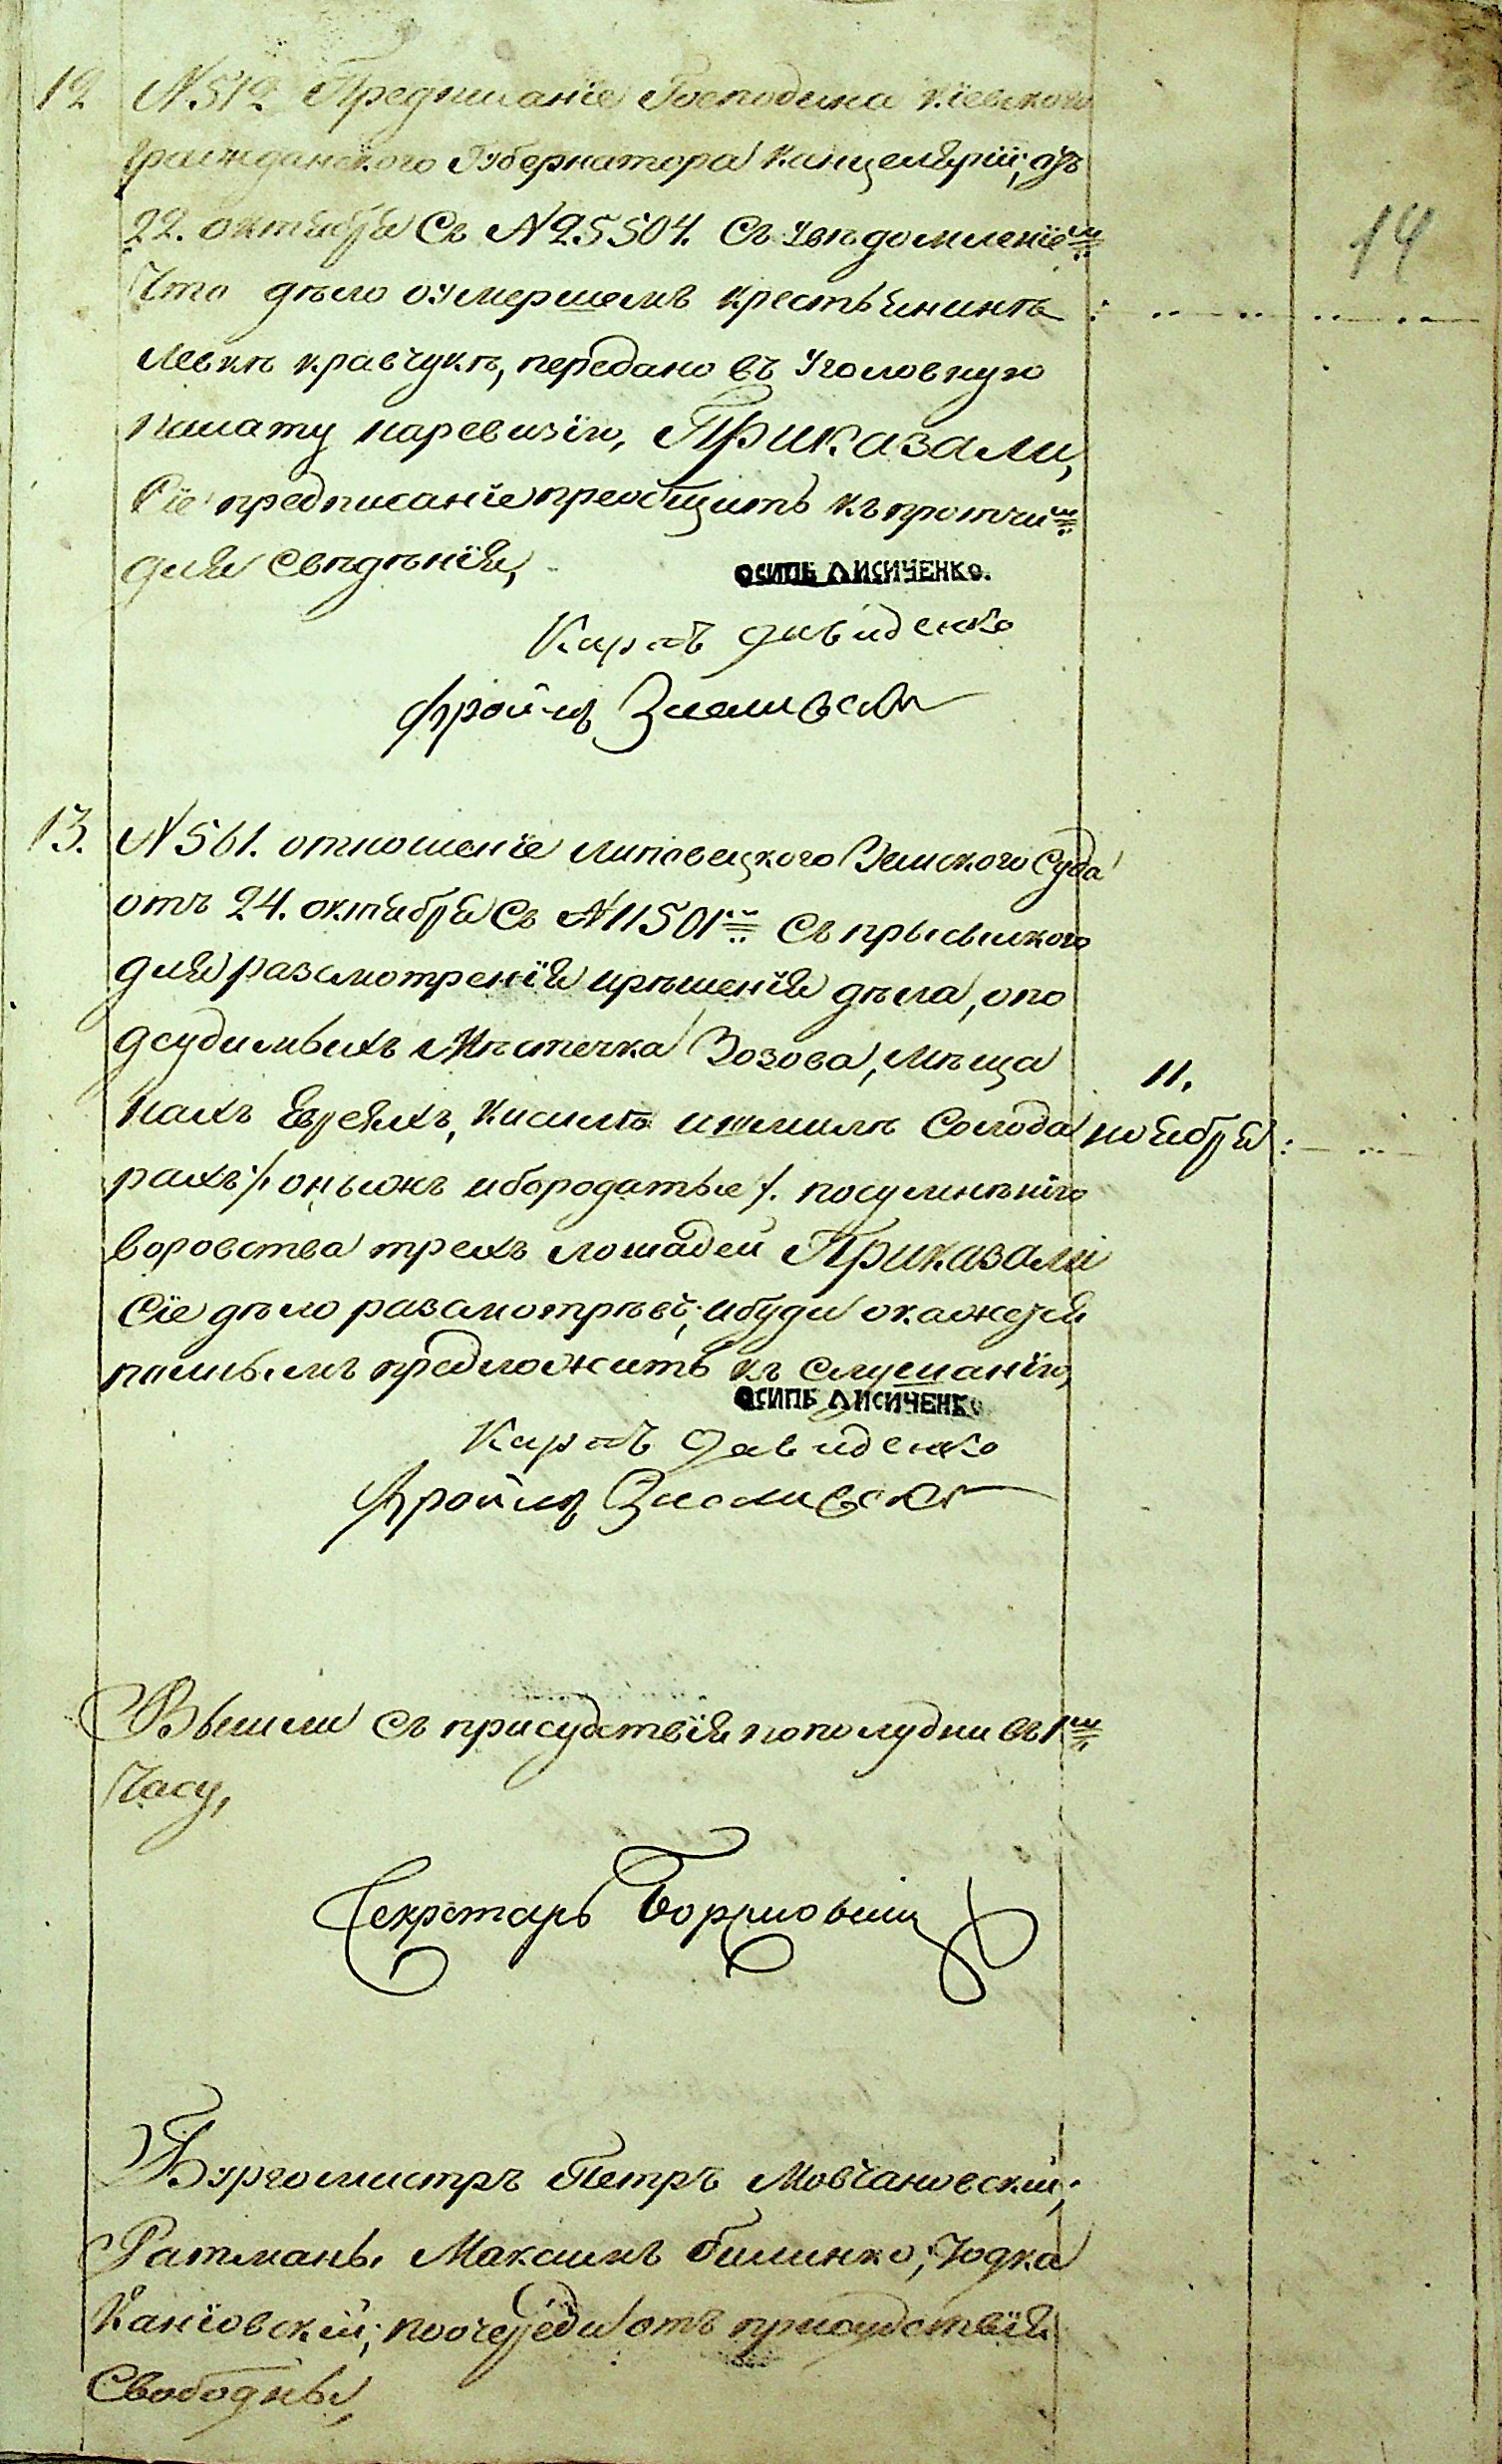 14
12 N 512 Предписанїе Господина Кїевского
гражданского Губернатора Канцелярїи, отъ
22. октября Съ N 25504. Съ увѣдомленїемъ
Что дѣло оумершемъ крестьянинѣ
Левкѣ кравчукѣ, передано въ Уголовную
палату наревизїю, Приказали,
Сїе предписанїе преобщить къ протчимъ
для свѣдѣнїя,
ОСИПЪ ЛИСИЧЕНКО.
Карпъ давиденко
13. N 561. отношенїе липовецкого Земского Суда
отъ 24. октября Съ N 11501мъ Съ прысылкого
для разсмотренїя ирѣшенїя дѣла, опо
дсудимыхъ Мѣстечка Зозова, мѣща
нахъ Евреяхъ, Кисилѣ ишмилѣ Солода
рахъ /: онъжъ ибородатые /. посумнѣнїю
воровства трехъ лошадей Приказали
Сїе дѣло разсмотрѣвъ, ибуди окажется
полнымъ предложить къ слушанїю,
11.
ноября
ОСИПЪ ЛИСИЧЕНКО
Карпъ давиденко
Вышли съ присудствїя пополудни въ 1мъ
Часу,
Секретарь
Бургомистръ Петръ Мовчановский,
Ратманы Максимъ билинко, Юдка
Канїовский, поочереди отъ присудствїя
Свободны,